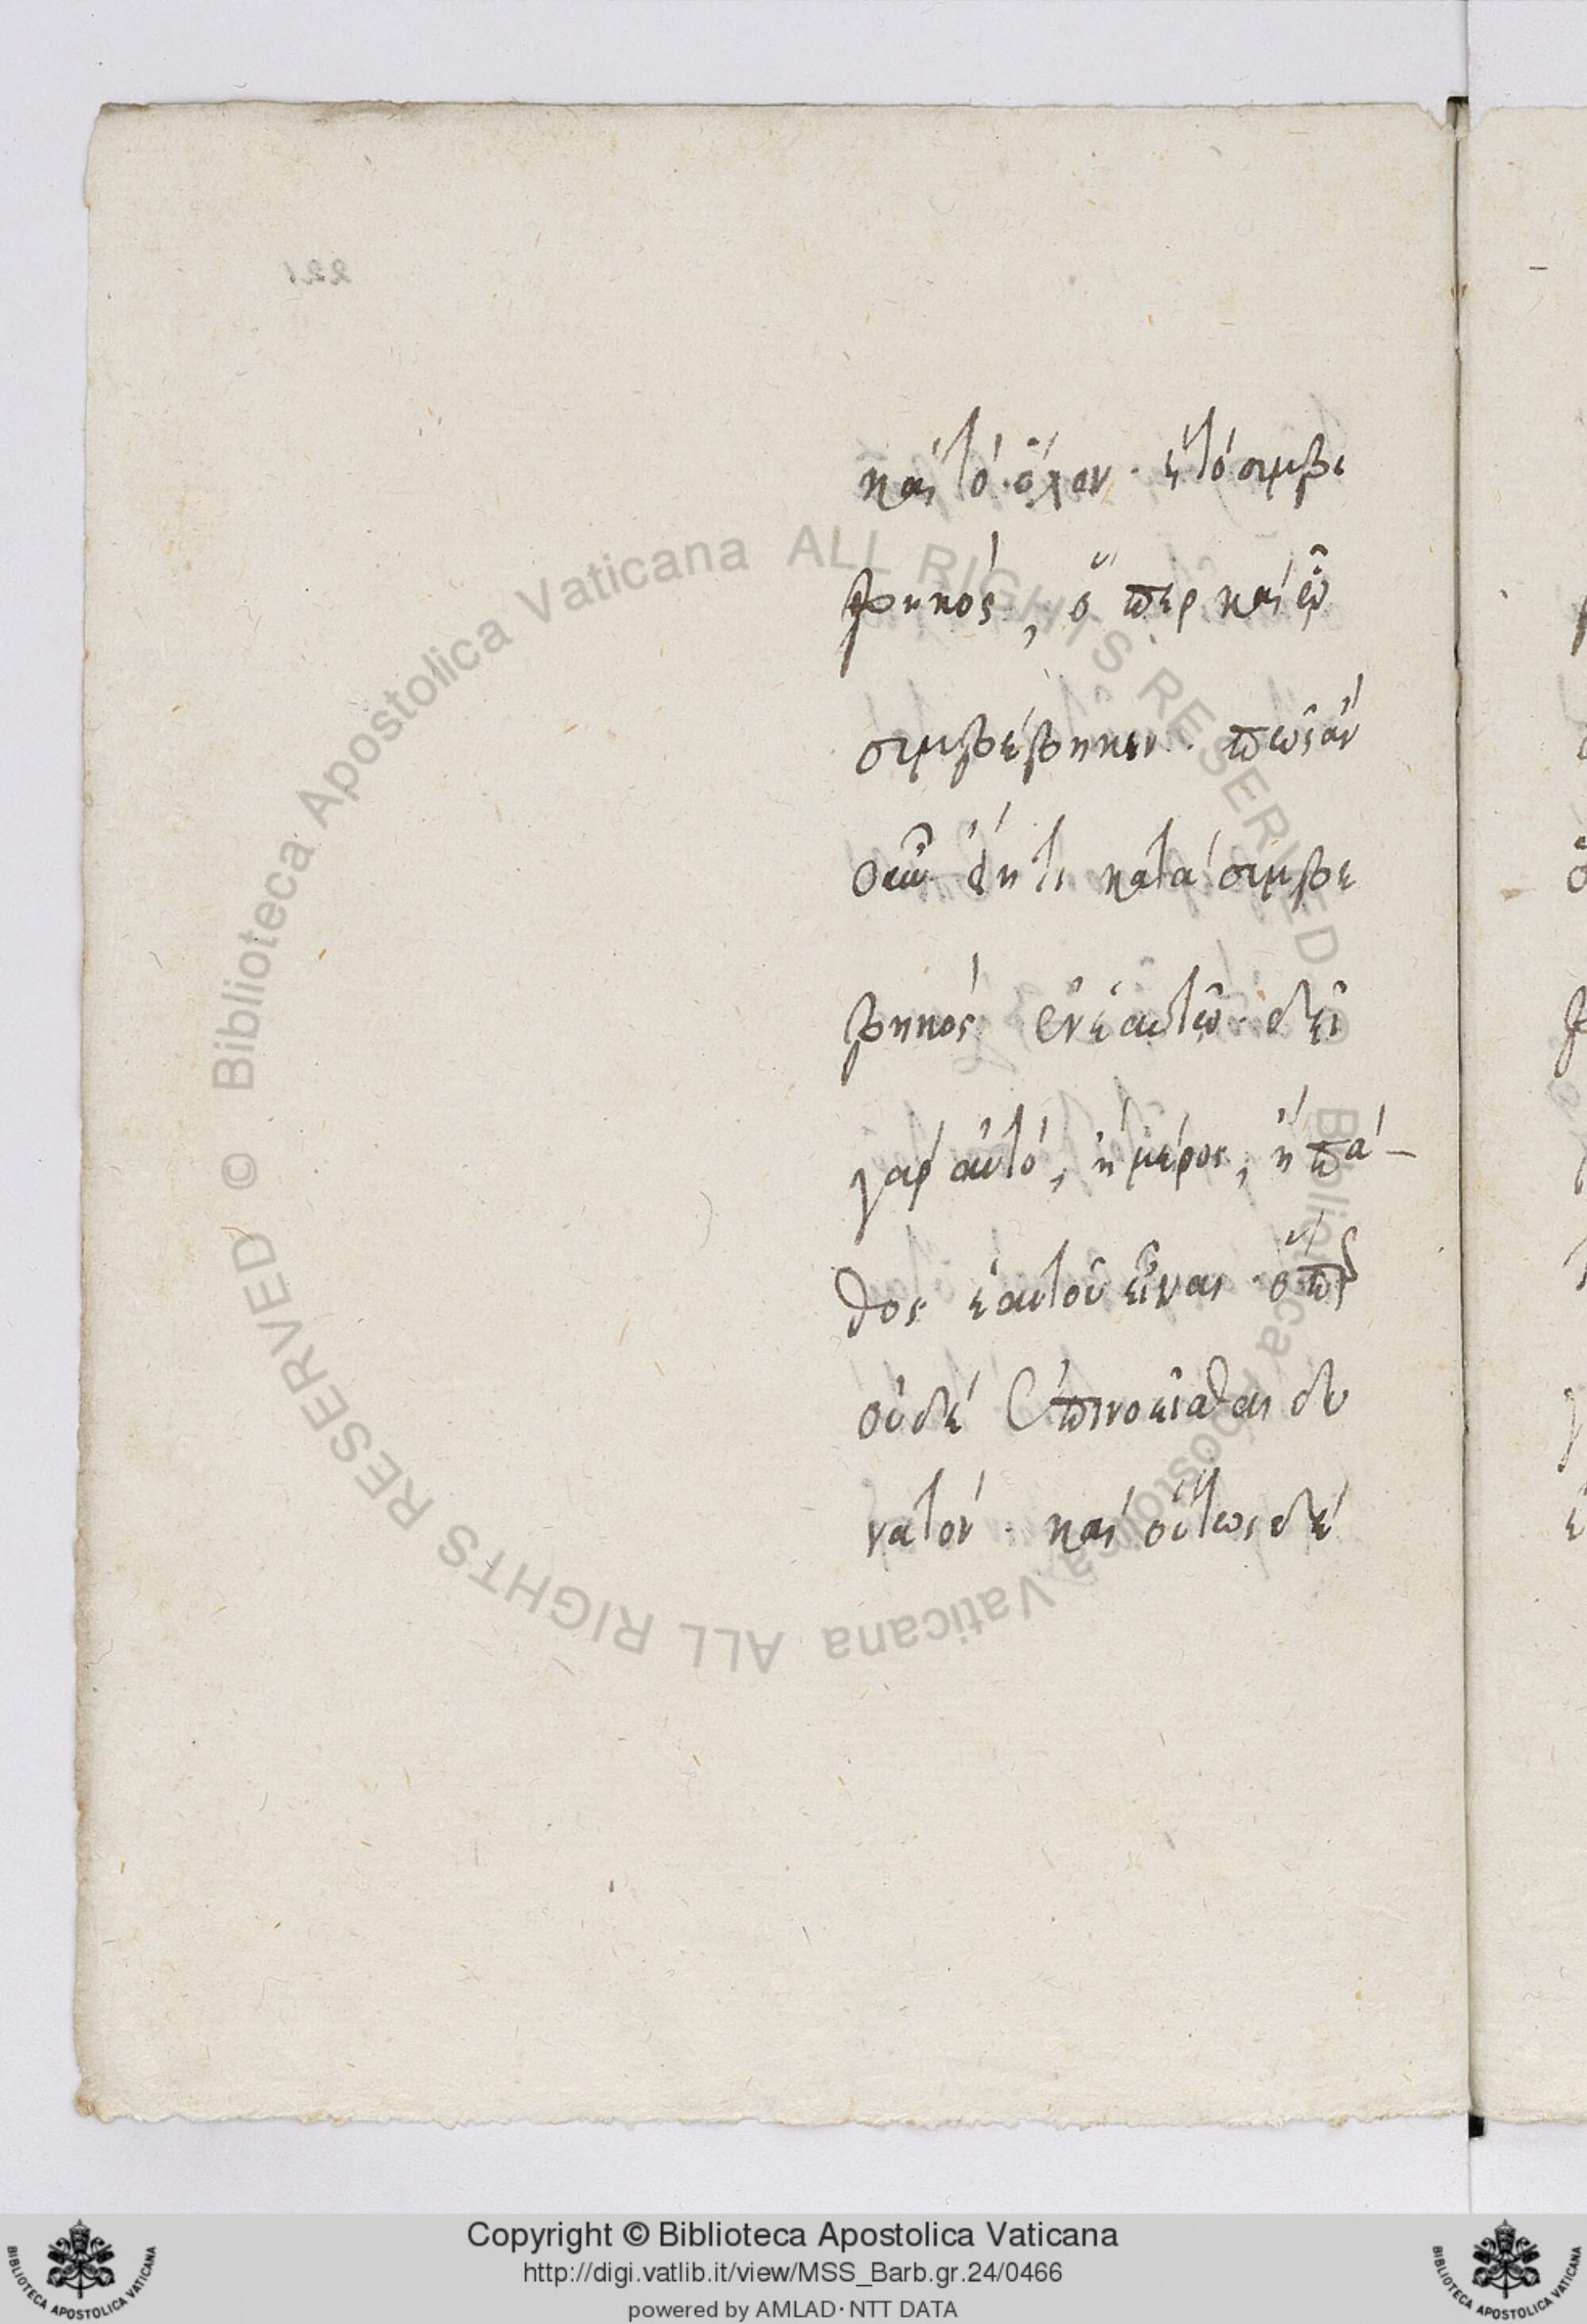 καὶ τὸ ὅλον. ἢ τὸ συμβε
βηκὸς, ὅπερ καὶ ᾧ
συμβέβηκεν. πῶς ἂν
οὖν ἔη τι κατὰ συμβε
βηκὸς ἐν ἑαυτῷ. δεῖ
γὰρ αὐτὸ, ἢ μέρος, ἢ πά-
θος ἑαυτοῦ εἶναι. ὅπερ
οὐδὲ ἐπινοεῖσθαι δυ
νατόν. καὶ οὕτως δὲ
221
© Biblioteca Apostolica Vaticana ALL RIGHTS RESERVED
© Biblioteca Apostolica Vaticana ALL RIGHTS RESERVED
Copyright © Biblioteca Apostolica Vaticana
http://digi.vatlib.it/view/MSS_Barb.gr.24/0466
powered by AMLAD · NTT DATA
BIBLIOTECA APOSTOLICA VATICANA
BIBLIOTECA APOSTOLICA VATICANA